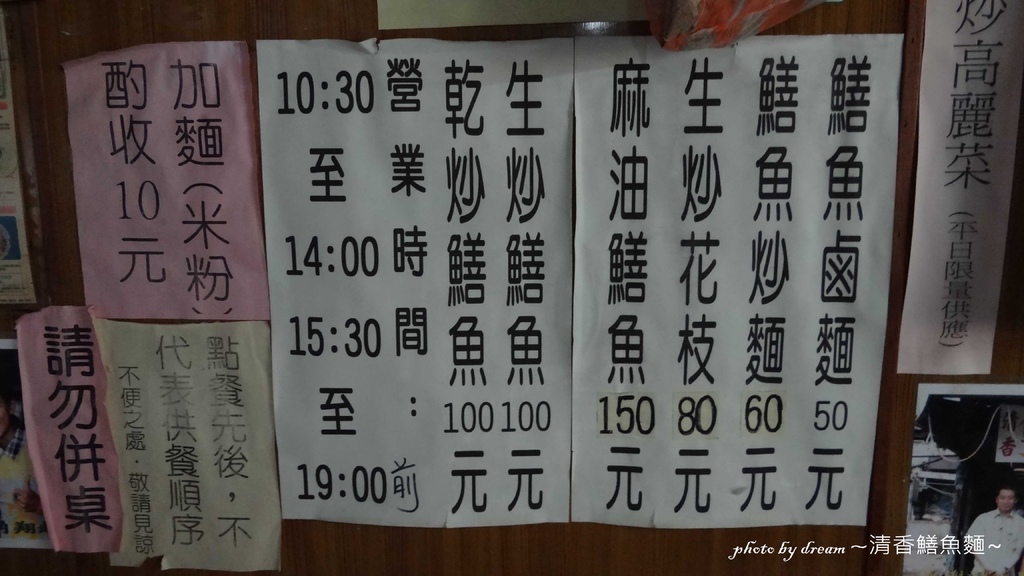 炒高麗菜(平日限量供應)
鱔魚鹵麵50元
鱔魚炒麵60元
生炒花枝80元
麻油鱔魚150元
生炒鱔魚100元
乾炒鱔魚100元
營業時間:
10:30
至
14:00
15:30
至
19:00前
加麵(米粉)
酌收10元
點餐先後,不
代表供餐順序
不便之處 敬請見諒
請勿併桌
清香
photo by dream ~清香鱔魚麵~